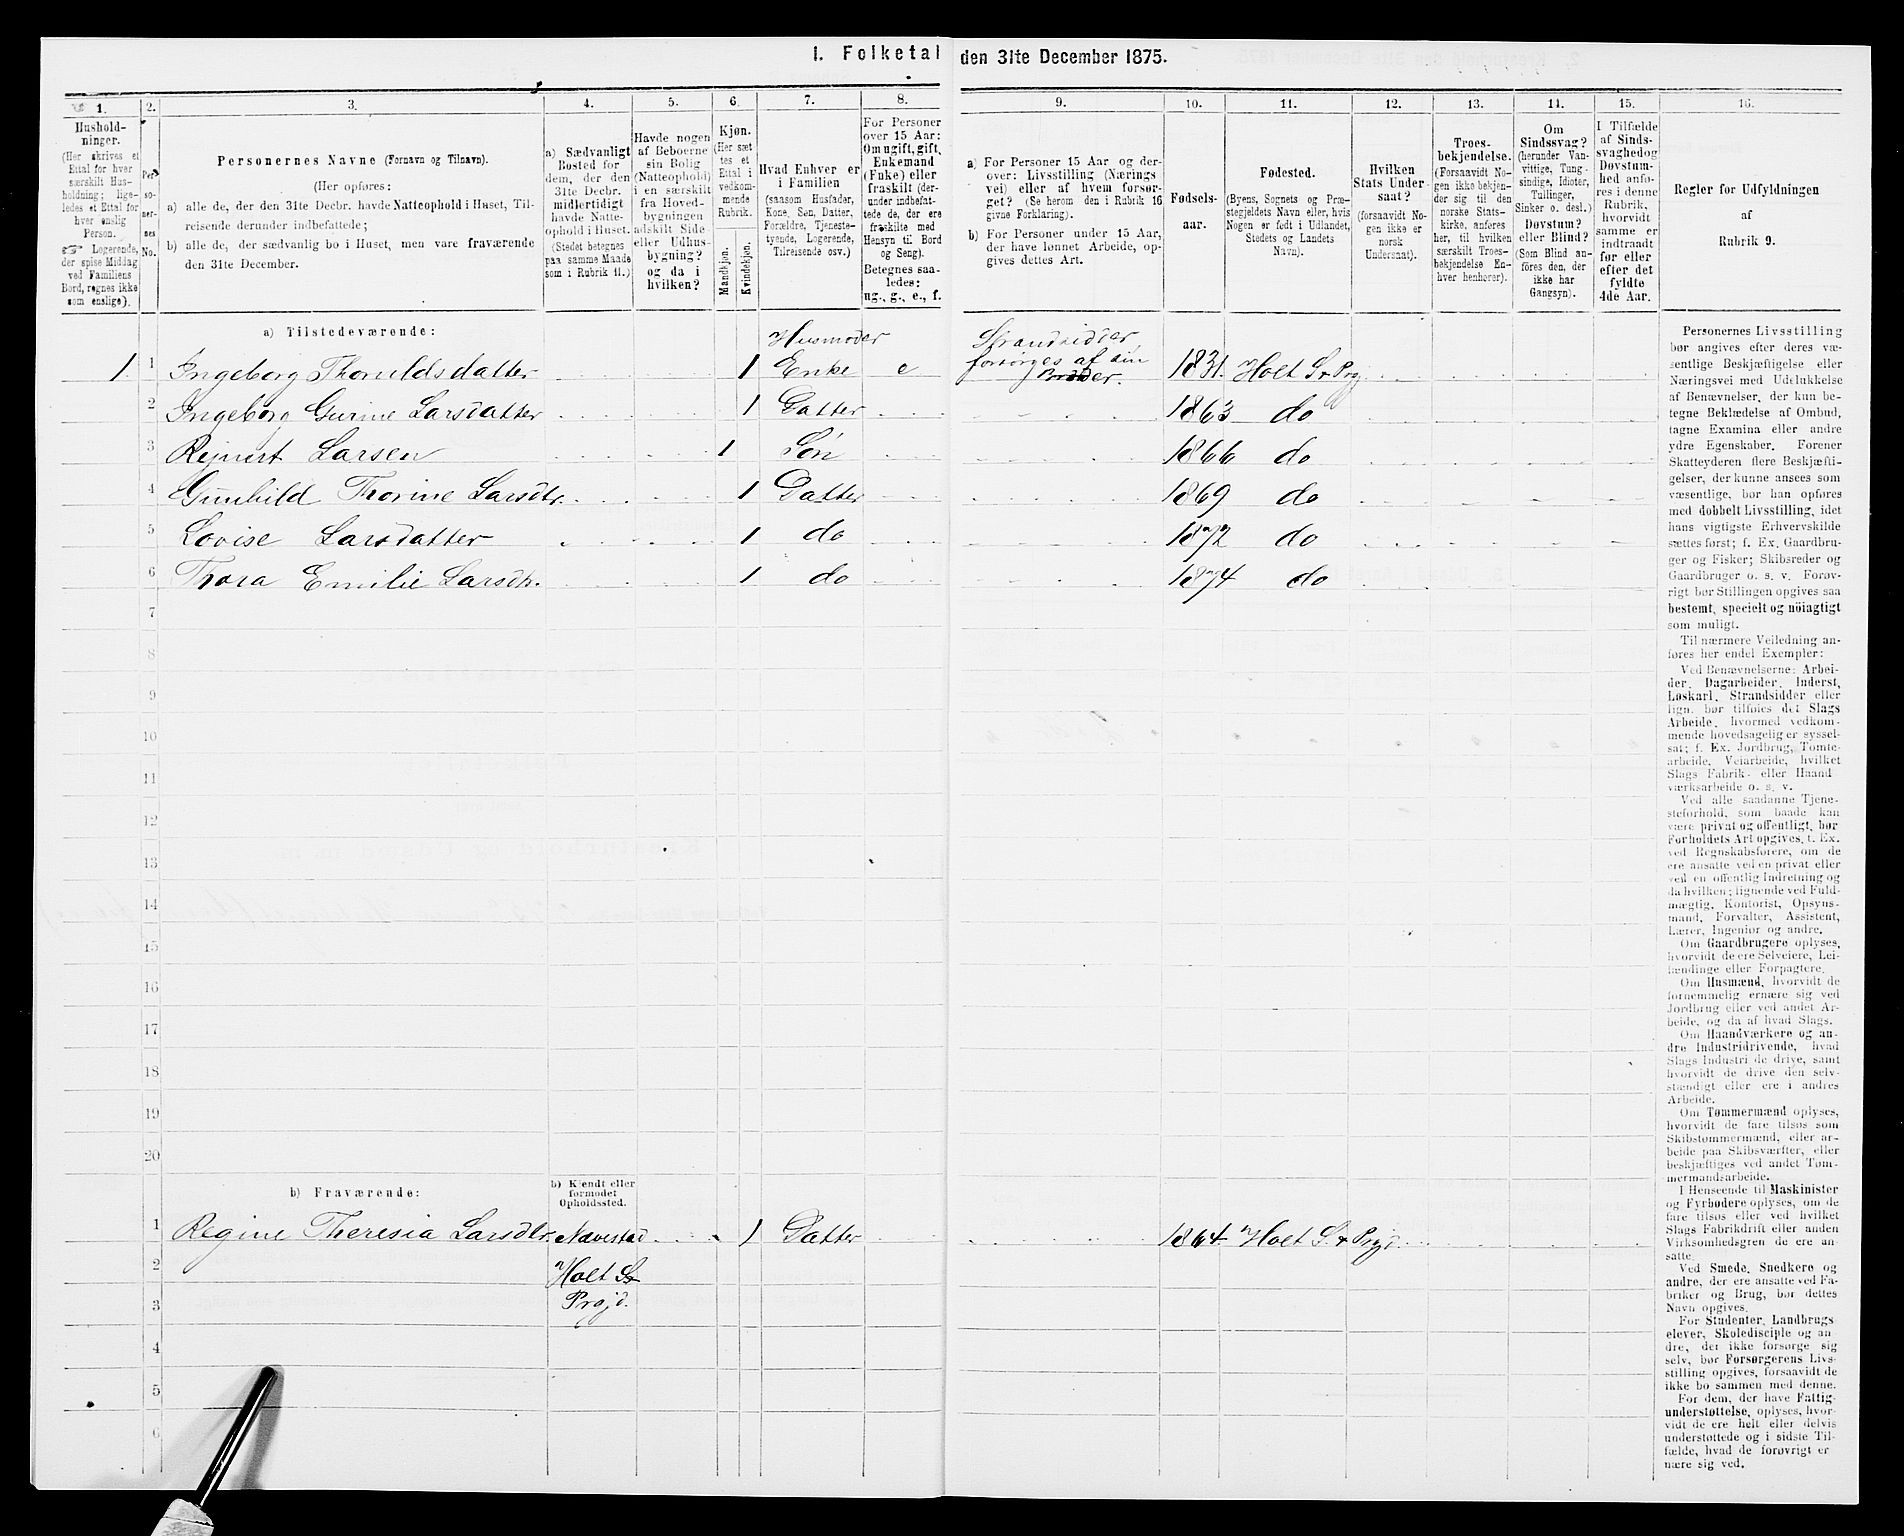 1. Folketal den 31te December 1875.
1. 2. 3. 4. 5. 6. 7. 8. 9. 10. 11. 12. 13. 14. 15. 16.
Hushold-
ninger.
(Her skrives et
Ettal for hver
særskilt Hus-
holdning; lige-
ledes et Ettal for
hver enslig
Person.
☞ Logerende,
der spise Middag
ved Familiens
Bord, regnes ikke
som enslige).
Per-
so-
ner-
nes
No.
Personernes Navne (Fornavn og Tilnavn).
(Her opføres:
a) alle de, der den 31te Decbr. havde Natteophold i Huset, Til-
reisende derunder indbefattede;
b) alle de, der sædvanlig bo i Huset, men vare fraværende
den 31te December.
a) Sædvanligt
Bosted for
dem, der den
31te Decbr.
midlertidigt
havde Natte-
ophold i Huset.
(Stedet betegnes
paa samme Maade
som i Rubrik 11.)
Havde nogen
af Beboerne
sin Bolig
(Natteophold)
i en særskilt
fra Hoved-
bygningen
adskilt Side-
eller Udhus-
bygning?
og da i
hvilken?
Kjøn.
(Her sæt-
tes et
Ettal i
vedkom-
mende
Rubrik.
Mandkjøn.
Kvindekjøn.
Hvad Enhver er
i Familien
(saasom Husfader,
Kone, Søn, Datter,
Forældre, Tjeneste-
tyende, Logerende,
Tilreisende osv.)
For Personer
over 15 Aar:
Om ugift, gift,
Enkemand
(Enke) eller
fraskilt (der-
under indbefat-
tede de, der ere
fraskilte med
Hensyn til Bord
og Seng).
Betegnes saa-
ledes:
ug., g., e., f.
a) For Personer 15 Aar og der-
over: Livsstilling (Nærings-
vei) eller af hvem forsør-
get? (Se herom den i Rubrik 16
givne Forklaring).
b) For Personer under 15 Aar,
der have lønnet Arbeide, op-
gives dettes Art.
Fødsels-
aar.
Fødested.
(Byens, Sognets og Præ-
stegjeldets Navn eller, hvis
Nogen er født i Udlandet,
Stedets og Landets
Navn).
Hvilken
Stats Under-
saat?
(forsaavidt No-
gen ikke er
norsk
Undersaat).
Troes-
bekjendelse.
(Forsaavidt No-
gen ikke bekjen-
der sig til den
norske Stats-
kirke, anføres
her, til hvilken
særskilt Troes-
bekjendelse En-
hver henhører).
Om
Sindssvag?
(herunder Van-
vittige, Tung-
sindige, Idioter,
Tullinger,
Sinker o. desl.)
Døvstum?
eller Blind?
(Som Blind an-
føres den, der
ikke har
Gangsyn).
I Tilfælde
af Sinds-
svaghed og
Døvstum-
hed anfø-
res i denne
Rubrik,
hvorvidt
samme er
indtraadt
før eller
efter det
fyldte
4de Aar.
Regler for Udfyldningen
af
Rubrik 9.
a) Tilstedeværende:
1. 1 Ingeborg Thoruldsdatter 1 Husmoder Enke e Strandsidder, forsørges af sin Broder. 1831. Holt S & Prgj
2 Ingeborg Gurine Larsdatter 1 Datter 1863 do
3 Rejnert Larsen 1 Søn 1866 do
4 Gunhild Thorine Larsdtr. 1 Datter 1869 do
5 Lovise Larsdatter 1 do 1872 do
6 Thora Emilie Larsdtr. 1 do 1874 do
7
8
9
10
11
12
13
14
15
16
17
18
19
20
b) Fraværende:
b) Kjendt eller
formodet
Opholdssted.
1 Regine Theresia Larsdtr. Nævestad 1 Datter 1864. Holt S & Prgjd.
2 Holt S &
3 Prgjd.
4
5
6
Personernes Livsstilling
bør angives efter deres væ-
sentlige Beskjæftigelse eller
Næringsvei med Udelukkelse
af Benævnelser, der kun be-
tegne Beklædelse af Ombud,
tagne Examina eller andre
ydre Egenskaber. Forener
Skatteyderen flere Beskjæfti-
gelser, der kunne ansees som
væsentlige, bør han opføres
med dobbelt Livsstilling, idet
hans vigtigste Erhvervskilde
sættes først; f. Ex. Gaardbru-
ger og Fisker; Skibsreder og
Gaardbruger o. s. v. Forøv-
rigt bør Stillingen opgives saa
bestemt, specielt og nöiagtigt
som muligt.
Til nærmere Veiledning an-
føres her endel Exempler:
Ved Benævnelserne: Arbei-
der, Dagarbeider, Inderst,
Løskarl, Strandsidder eller
lign. bør tilføies det Slags
Arbeide, hvormed vedkom-
mende hovedsagelig er syssel-
sat; f. Ex. Jordbrug, Tomte-
arbeide, Veiarbeide, hvilket
Slags Fabrik- eller Haand-
værksarbeide o. s. v.
Ved alle saadanne Tjene-
steforhold, som baade kan
være privat og offentligt, bør
Forholdets Art opgives, t. Ex.
ved Regnskabsførere, om de
ere ansatte ved en privat eller
ved en offentlig Indretning og
da hvilken; lignende ved Fuld-
mægtig, Kontorist, Opsyns-
mand, Forvalter, Assistent,
Lærer, Ingeniør og andre.
Om Gaardbrugere oplyses,
hvorvidt de ere Selveiere, Lei-
lændinge eller Forpagtere.
Om Husmænd, hvorvidt de
fornemmelig ernære sig ved
Jordbrug eller ved andet Ar-
beide, og da af hvad Slags.
Om Haandværkere og an-
dre Industridrivende, hvad
Slags Industri de drive, samt
hvorvidt de drive den selv-
stændigt eller ere i andres
Arbeide.
Om Tømmermænd oplyses,
hvorvidt de fare tilsøs som
Skibstømmermænd, eller ar-
beide paa Skibsværfter, eller
beskjæftiges ved andet Tøm-
mermandsarbeide.
I Henseende til Maskinister
og Fyrbødere oplyses, om de
fare tilsøs eller ved hvilket
Slags Fabrikdrift eller anden
Virksomhedsgren de ere an-
satte.
Ved Smede, Snedkere og
andre, der ere ansatte ved Fa-
briker og Brug, bør dettes
Navn opgives.
For Studenter, Landbrugs-
elever, Skoledisciple og an-
dre, der ikke forsørge sig
selv, bør Forsørgerens Livs-
stilling opgives, forsaavidt de
ikke bo sammen med denne.
For dem, der have Fattig-
understøttelse, oplyses, hvor-
vidt de ere helt eller delvis
understøttede og i sidste Til-
fælde, hvad de forøvrigt er-
nære sig ved.